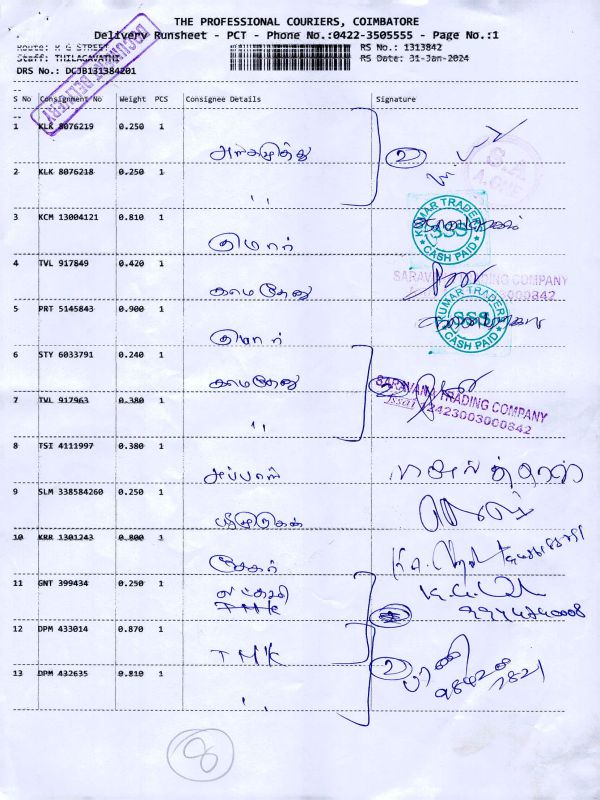 THE PROFESSIONAL COURIERS, COIMBATORE
Delivery Runsheet - PCT - Phone No.:0422-3505555 - Page No.:1
Route: M G STREET RS No.: 1313842
Staff: THILAGAVATHI RS Date: 31-Jan-2024
DRS No.: DCJB131384201
S No Consignment No Weight PCS Consignee Details Signature
1 KLK 8076219 0.250 1
2
2 KLK 8076218 0.250 1
" 
3 KCM 13004121 0.810 1
KUMAR TRADERS
CASH PAID
குமார்
4 TVL 917849 0.420 1
SARAVANA TRADING COMPANY
காமதேனு
5 PRT 5145843 0.900 1
KUMAR TRADERS
CASH PAID
குமார்
6 STY 6033791 0.240 1
காமதேனு
SARAVANA TRADING COMPANY
fssai 12423003000842
7 TVL 917963 0.380 1
"
8 TSI 4111997 0.380 1
அப்பாஸ்
9 SLM 338584260 0.250 1
ஸ்ரீமுருகன்
10 KRR 1301243 0.800 1
சேகர்
11 GNT 399434 0.250 1
லட்சுமி
12 DPM 433014 0.870 1
TMK
2
பரணி
13 DPM 432635 0.810 1
"
8